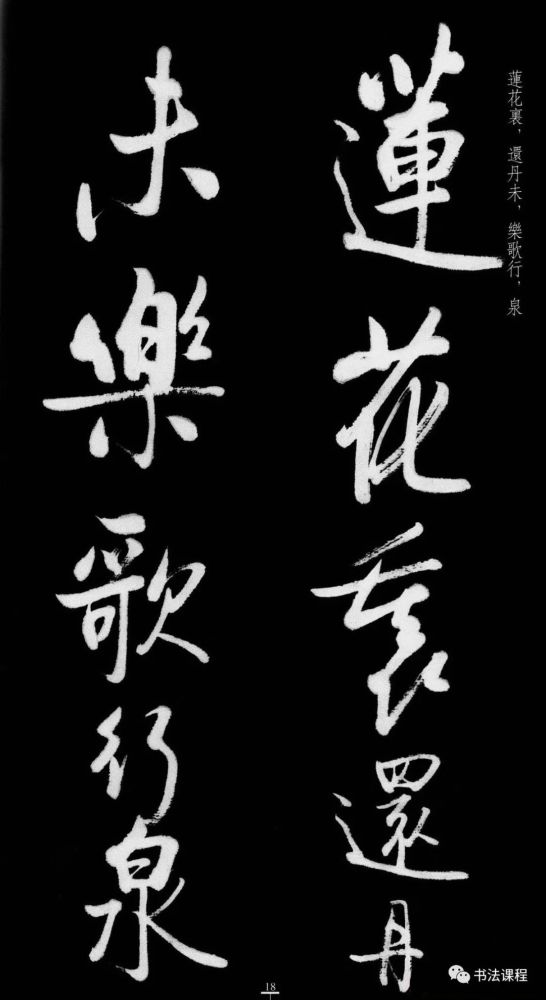 蓮花裏，還丹未，樂歌行，泉
蓮花裏還丹
未樂歌行泉
18
书法课程